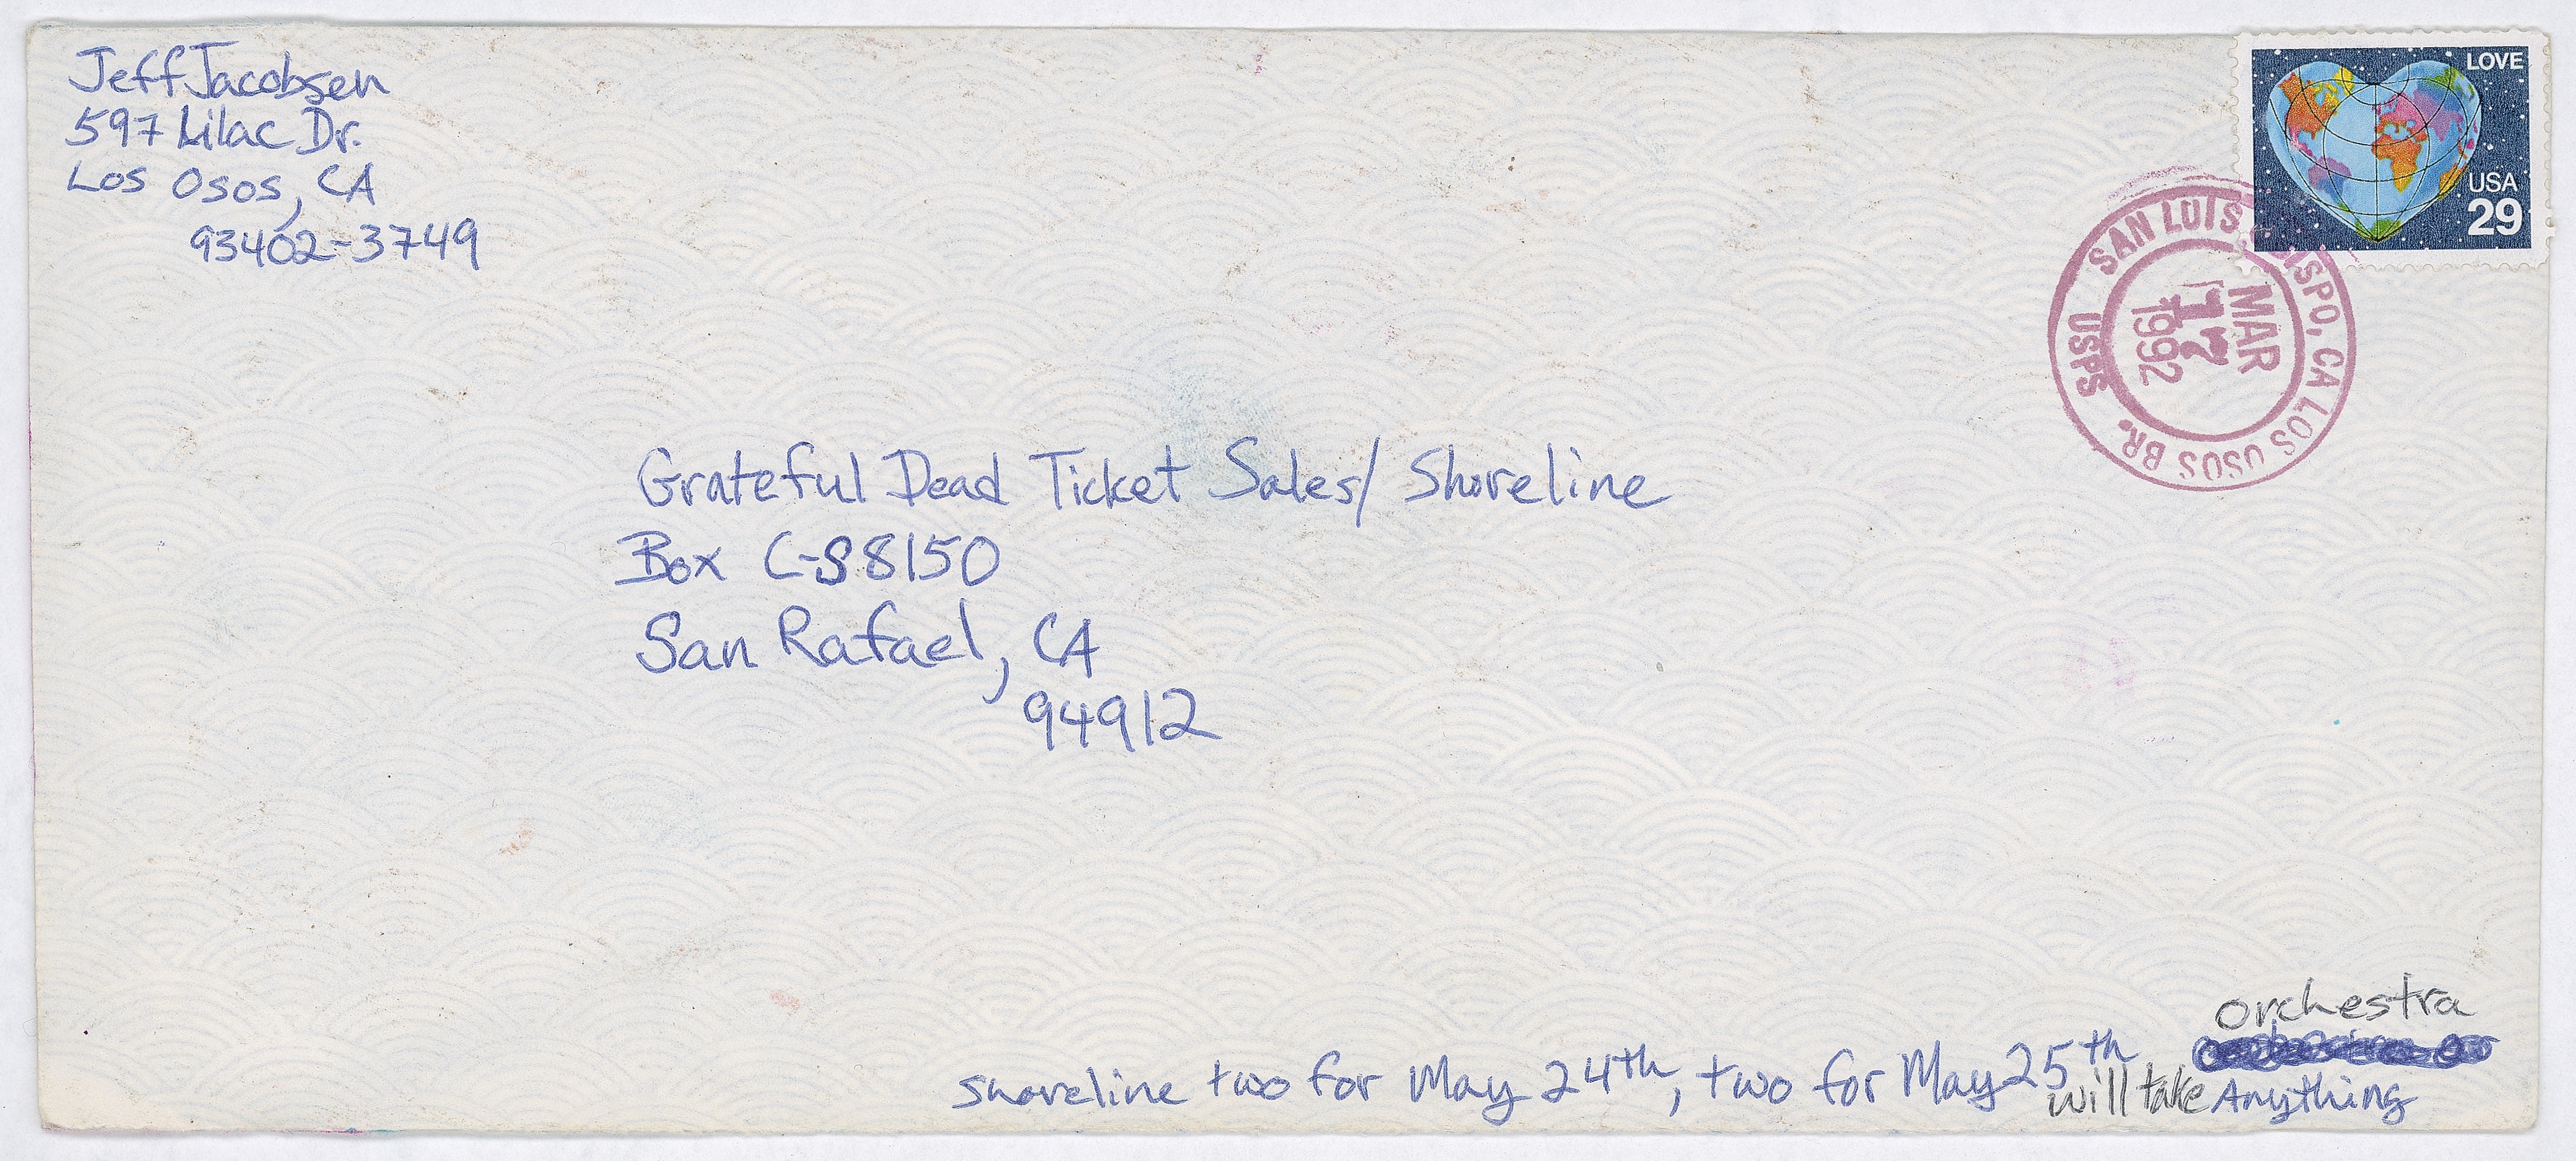 Jeff Jacobsen
597 Lilac Dr.
Los Osos, CA
93402-3749
LOVE
USA
29
SAN LUIS OBISPO, CA LOS OSOS BR. USPS
MAR
12
1992
Grateful Dead Ticket Sales/ Shoreline
Box C-S8150
San Rafael, CA
94912
orchestra
shoreline two for May 24th, two for May 25th
will take Anything